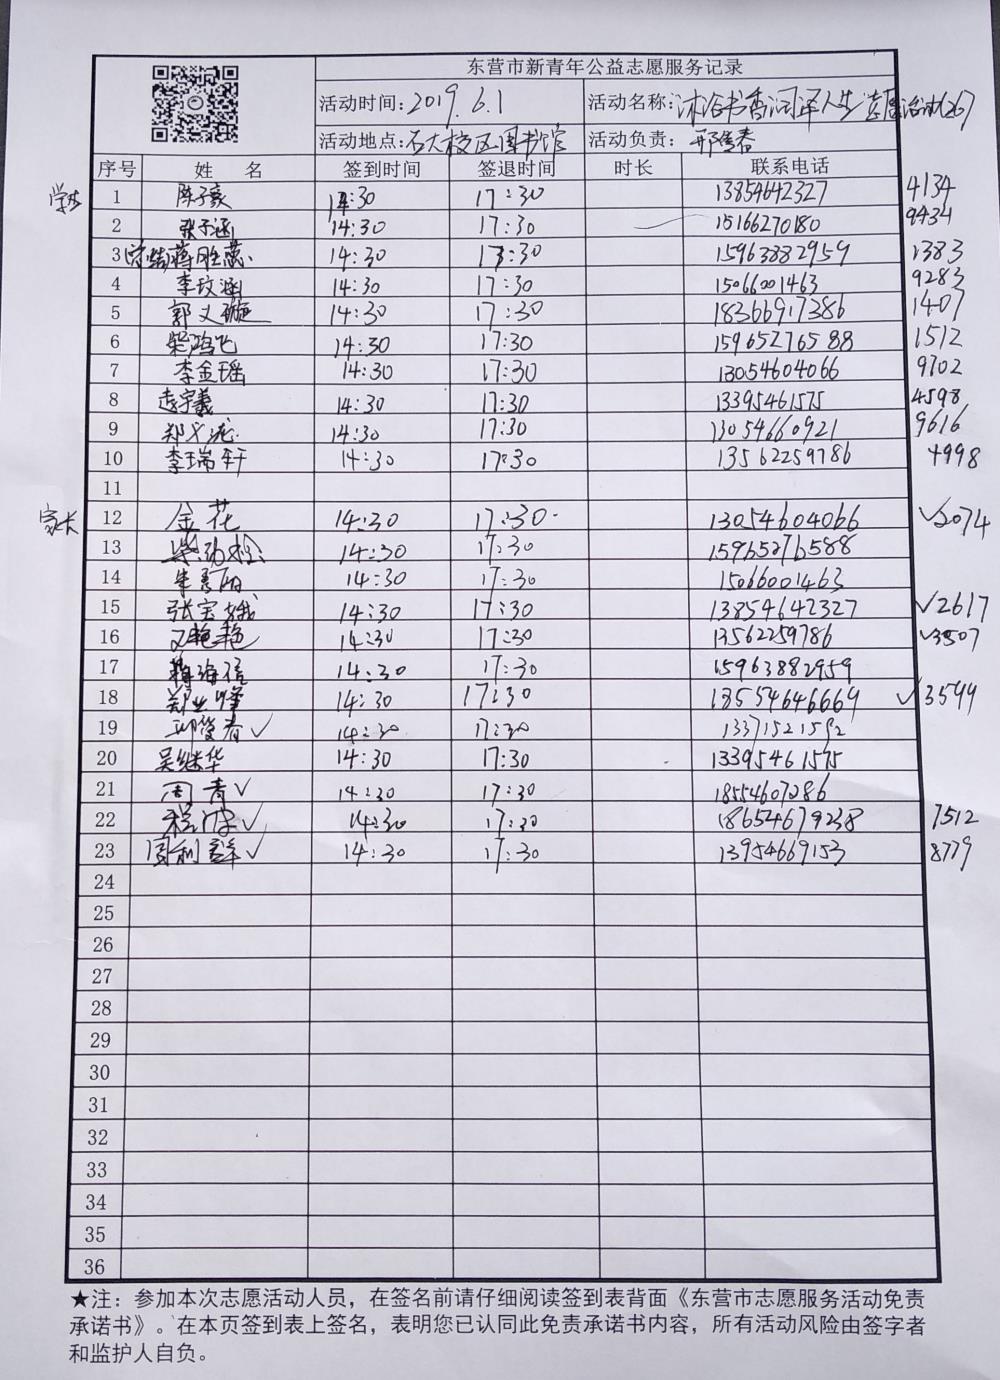 东营市新青年公益志愿服务记录
活动时间:2019.6.1 活动名称:沐浴书香润泽人生 志愿活动(267)
活动地点:石大校区图书馆 活动负责:
序号 姓 名 签到时间 签退时间 时长 联系电话
学生 1 陈子豪 14:30 17:30 13854642327 4134
2 张子涵 14:30 17:30 15166270180 9434
3 蒋胜燕 14:30 17:30 15963882959 1383
4 李玟涵 14:30 17:30 15066001463 9283
5 郭义璇 14:30 17:30 18366917386 1407
6 柴鸿飞 14:30 17:30 15965276588 1512
7 李金瑶 14:30 17:30 13054604066 9702
8 14:30 17:30 13395461575 4598
9 14:30 17:30 13054660921 9616
10 李瑞轩 14:30 17:30 13562259786 4998
11
家长 12 金花 14:30 17:30 13054604066 ✓2074
13 14:30 17:30 15965276588
14 14:30 17:30 15066001463
15 张宝娥 14:30 17:30 13854642327 ✓2617
16 艳艳 14:30 17:30 13562259786 ✓3507
17 蒋海信 14:30 17:30 15963882959
18 郑业峰 14:30 17:30 18554646669 ✓3599
19 ✓ 14:30 17:30
20 吴继华 14:30 17:30 13395461575
21 周青✓ 14:30 17:30 18554607286
22 程波✓ 14:30 17:30 18654679238 7512
23 周利群✓ 14:30 17:30 13954669153 8779
24
25
26
27
28
29
30
31
32
33
34
35
36
★注：参加本次志愿活动人员，在签名前请仔细阅读签到表背面《东营市志愿服务活动免责
承诺书》。在本页签到表上签名，表明您已认同此免责承诺书内容，所有活动风险由签字者
和监护人自负。